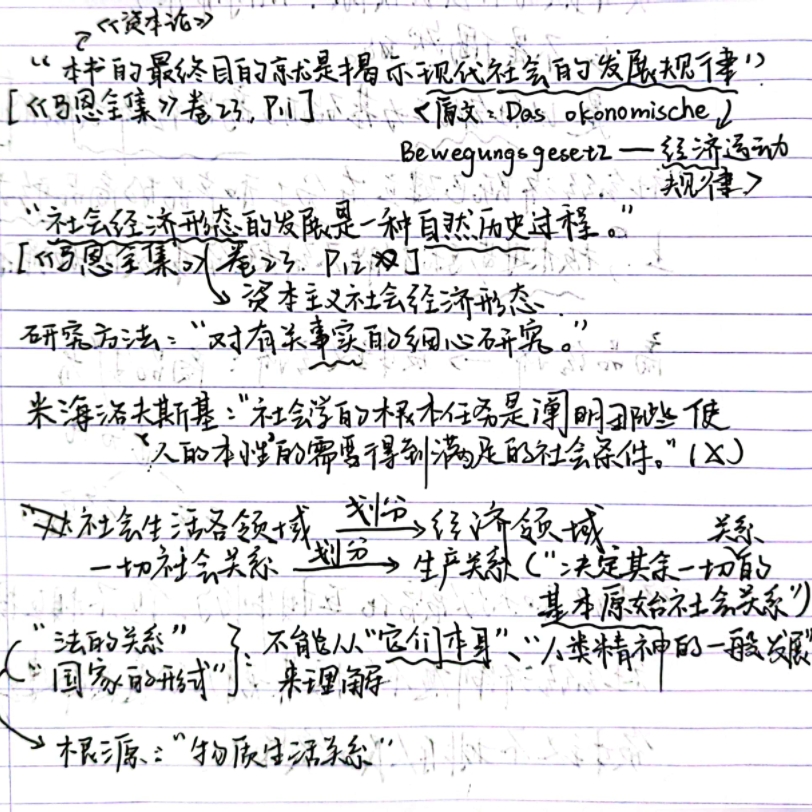 《资本论》
“本书的最终目的就是揭示现代社会的发展规律”
[《马恩全集》卷23, P.11]
<原文: Das okonomische
Bewegungsgesetz — 经济运动
规律>
“社会经济形态的发展是一种自然历史过程。”
[《马恩全集》卷23. P.12]
资本主义社会经济形态
研究方法:“对有关事实的细心研究。”
米海洛夫斯基:“社会学的根本任务是阐明那些使
‘人的本性’的需要得到满足的社会条件。”(X)
从社会生活各领域 划分→ 经济领域
一切社会关系 划分→ 生产关系(“决定其余一切关系的
基本原始社会关系”)
“法的关系”
“国家的形式”}: 不能从“它们本身”、“人类精神的一般发展”
来理解
→ 根源:“物质生活关系”